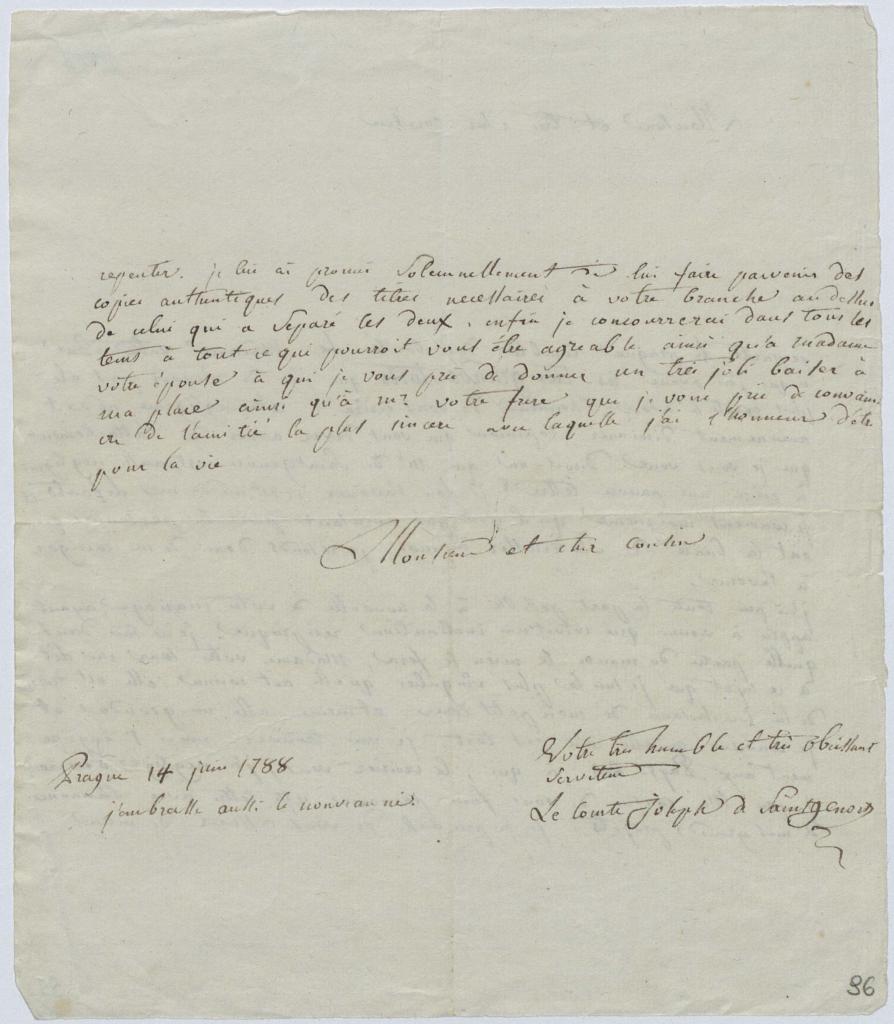 repenter. je lui ai promis solemnellement de lui faire parvenir des
copies authentiques des titres necessaires à votre branche au dessus
de celui qui a separé les deux. enfin je concourrerai dans tous les
tems à tout ce qui pourroit vous être agreable ainsi qu'a madame
votre épouse à qui je vous prie de donner un très joli baiser à
ma place ainsi qu'à mr votre frere que je vous prie de convain
cre de l'amitié la plus sincere avec laquelle j'ai l'honneur d'étre
pour la vie
Monsieur et cher cousin
Votre très humble et très obeissant
serviteur
Le comte Joseph de Saintgenois
Prague 14 juin 1788
j'embrasse aussi le nouveau né.
96